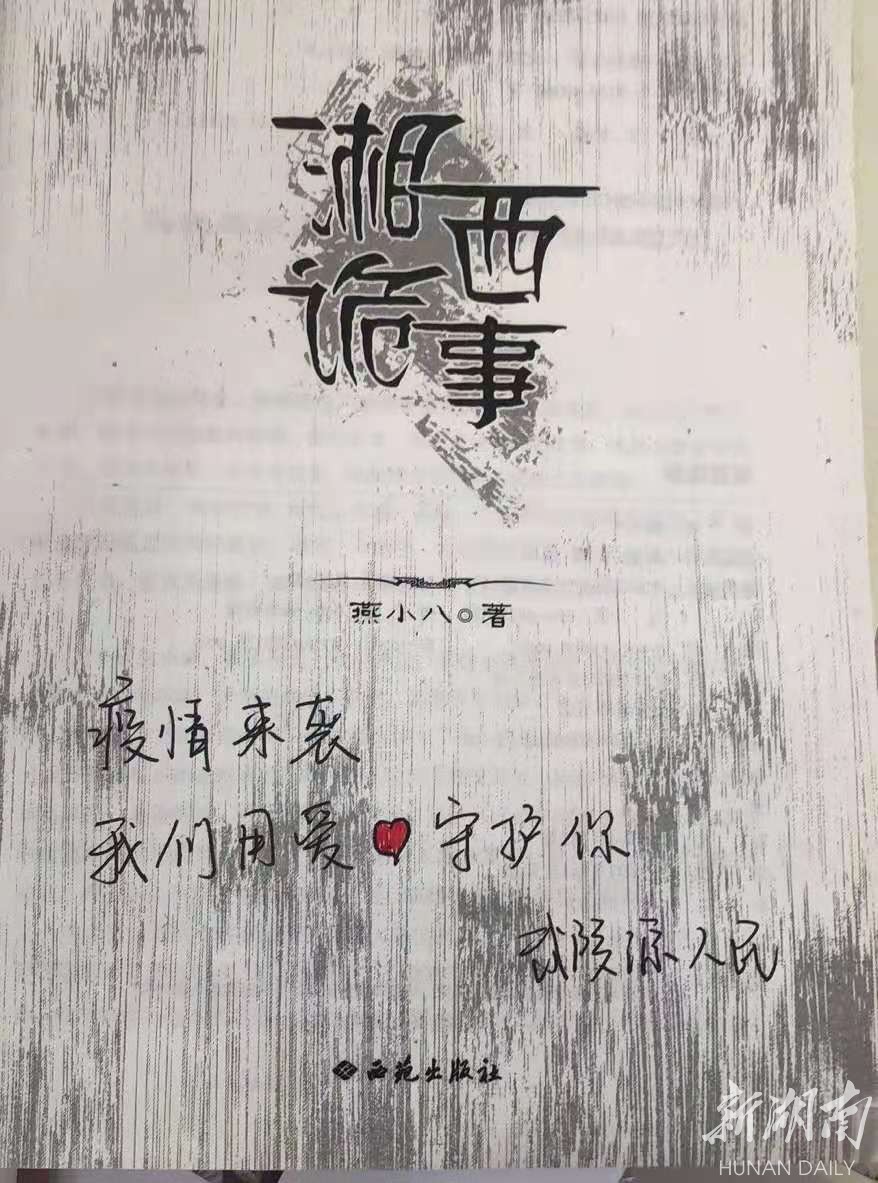 湘西
诡事
燕小八◎著
疫情来袭
我们用爱❤守护你
武陵源人民
西苑出版社
新湖南
HUNAN DAILY